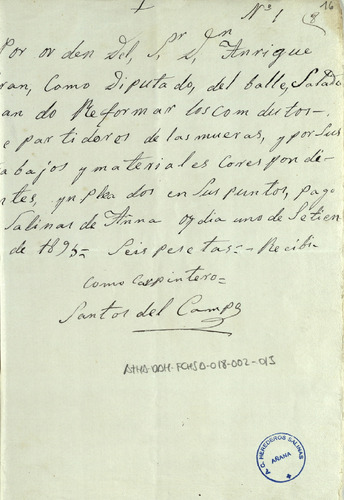 Nº 1
16
8
Por orden Del, Sr Dn Anrique
ran, Como Diputado, del balle, Salado
an do Reformar los Comdutos-
e partidores de las mueras, y por sus
abajos y materiales Corespondi-
entes, ynplea dos en Sus puntos, pago
Salinas de Anna oy dia uno de Setien
de 1895= Seis pesetas=- Recibi
Como Carpintero=
Santos del Campo
ATHA-DAH-FCHSA-018-002-013
C. HEREDEROS SALINAS
AÑANA